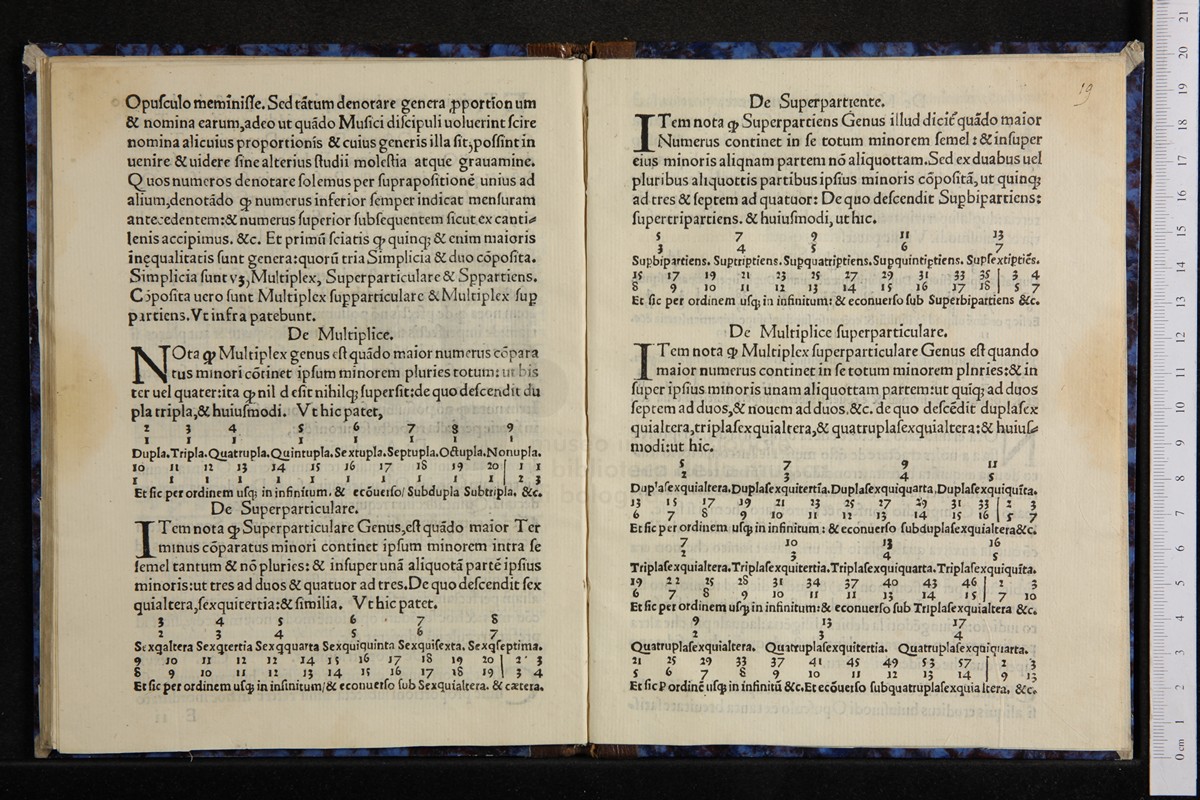 Opuſculo meminiſſe. Sed tātum denotare genera ꝓportion um
& nomina earum,adeo ut quādo Muſici diſcipuli uoluerint ſcire
nomina alicuius proportionis & cuius generis illa ſit,poſſint in
uenire & uidere ſine alterius ſtudii moleſtia atque grauamine.
Quos numeros denotare ſolemus per ſuprapoſitionē unius ad
alium,denotādo ꝙ numerus inferior ſemper indicat menſuram
antecedentem:& numerus ſuperior ſubſequentem ſicut ex canti⸗
lenis accipimus. &c. Et primū ſciatis ꝙ quinqꝫ & enim maioris
inequalitatis ſunt genera:quorū tria Simplicia & duo cōpoſita.
Simplicia ſunt vꝫ,Multiplex, Superparticulare & Sppartiens.
Cōpoſita uero ſunt Multiplex ſupparticulare & Multiplex ſup
partiens.Vt infra patebunt.
De Multiplice.
NOta ꝙ Multiplex genus eſt quādo maior numerus cōpara
tus minori cōtinet ipſum minorem pluries totum: ut bis
ter uel quater:ita ꝙ nil d eſit nihilqꝫ ſuperſit:de quo deſcendit du
pla tripla,& huiuſmodi. Vt hic patet,
2 3 4 5 6 7 8 9
1 1 1 1 1 1 1 1
Dupla.Tripla.Quatrupla.Quintupla.Sextupla.Septupla.Octupla.Nonupla.
10 11 12 13 14 15 16 17 18 19 20 | 1 1
1 1 1 1 1 1 1 1 1 1 1 | 2 3
Et ſic per ordinem uſqꝫ in infinitum. & ecōuerſo/ Subdupla Subtripla. &c.
De Superparticulare.
ITem nota ꝙ Superparticulare Genus,eſt quādo maior Ter
minus cōparatus minori continet ipſum minorem intra ſe
ſemel tantum & nō pluries: & inſuper unā aliquotā partē ipſius
minoris:ut tres ad duos & quatuor ad tres.De quo deſcendit ſex
quialtera,ſexquitertia:& ſimilia. Vt hic patet.
3 4 5 6 7 8
2 3 4 5 6 7
Sexqaltera Sexqtertia Sexqquarta Sexquiquinta Sexquiſexta. Sexqſeptima.
9 10 11 12 12 14 15 16 17 18 19 20 | 2 3
8 9 10 11 12 13 14 15 16 17 18 19 | 3 4
Et ſic per ordinem uſqꝫ in infinitum/& econuerſo ſub Sexquialtera. & cætera.
19
De Superpartiente.
ITem nota ꝙ Superpartiens Genus illud diciē quādo maior
Numerus continet in ſe totum minorem ſemel:& inſuper
eius minoris aliqnam partem nō aliquottam.Sed ex duabus uel
pluribus aliquottis partibus ipſius minoris cōpoſitā,ut quinqꝫ
ad tres & ſeptem ad quatuor: De quo deſcendit Supbipartiens:
ſupertripartiens. & huiuſmodi, ut hic.
5 7 9 11 13
3 4 5 6 7
Supbipartiens. Suptriptiens. Supquatriptiens.Supquintiptiens. Supſextiptiēs.
15 17 19 21 23 25 27 29 31 33 35 | 3 4
8 9 10 11 12 13 14 15 16 17 18 | 5 7
Et ſic per ordinem uſqꝫ in infinitum: & econuerſo ſub Superbipartiens &c.
De Multiplice ſuperparticulare.
ITem nota ꝙ Multiplex ſuperparticulare Genus eſt quando
maior numerus continet in ſe totum minorem plnries:& in
ſuper ipſius minoris unam aliquottam partem:ut quīqꝫ ad duos
ſeptem ad duos,& nouem ad duos.&c. de quo deſcēdit duplaſex
quialtera,triplaſexquialtera,& quatruplaſexquialtera:& huiuſ⸗
modi:ut hic.
5 7 9 11
2 3 4 5
Duplaſexquialtera.Duplaſexquitertīa.Duplaſexquiquarta.Duplaſexquiquīta.
13 15 17 19 21 23 25 27 29 31 33 | 2 3
6 7 8 9 10 11 12 13 14 15 16 | 5 7
Et ſic per ordinem uſqꝫ in infinitum: & econuerſo ſubduplaſexquialtera&c.
7 10 13 16
2 3 4 5
Triplaſexquialtera.Triplaſexquitertia.Triplaſexquiquarta.Triplaſexquiquīta.
19 22 25 28 31 34 37 40 43 46 | 2 3
6 7 8 9 10 11 13 14 15 | 7 10
Et ſic per ordinem uſqꝫ in infinitum:& econuerſo ſub Triplaſexquialtera &c.
9 13 17
2 3 4
Quatruplaſexquialtera. Quatruplaſexquitertia. Quatruplaſexquiquarta.
21 25 29 33 37 41 45 49 53 57 | 2 3
5 6 7 8 9 10 11 12 13 14 | 9 13
Et ſic P ordinē uſqꝫ in infinitū &c.Et ecōuerſo ſubquatruplaſexquia ltera. &c.